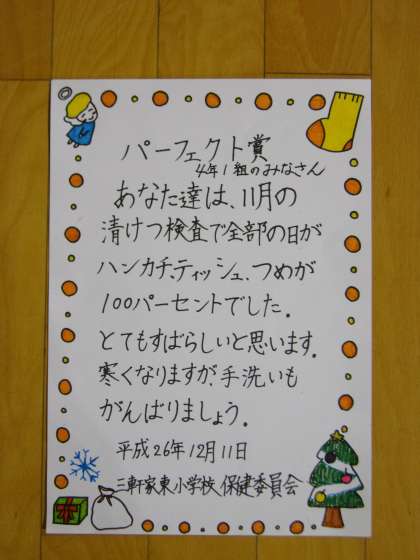 パーフェクト賞
4年1組のみなさん
あなた達は、11月の
清けつ検査で全部の日が
ハンカチ、ティッシュ、つめが
100パーセントでした。
とてもすばらしいと思います。
寒くなりますが、手洗いも
がんばりましょう。
平成26年12月11日
三軒家東小学校 保健委員会